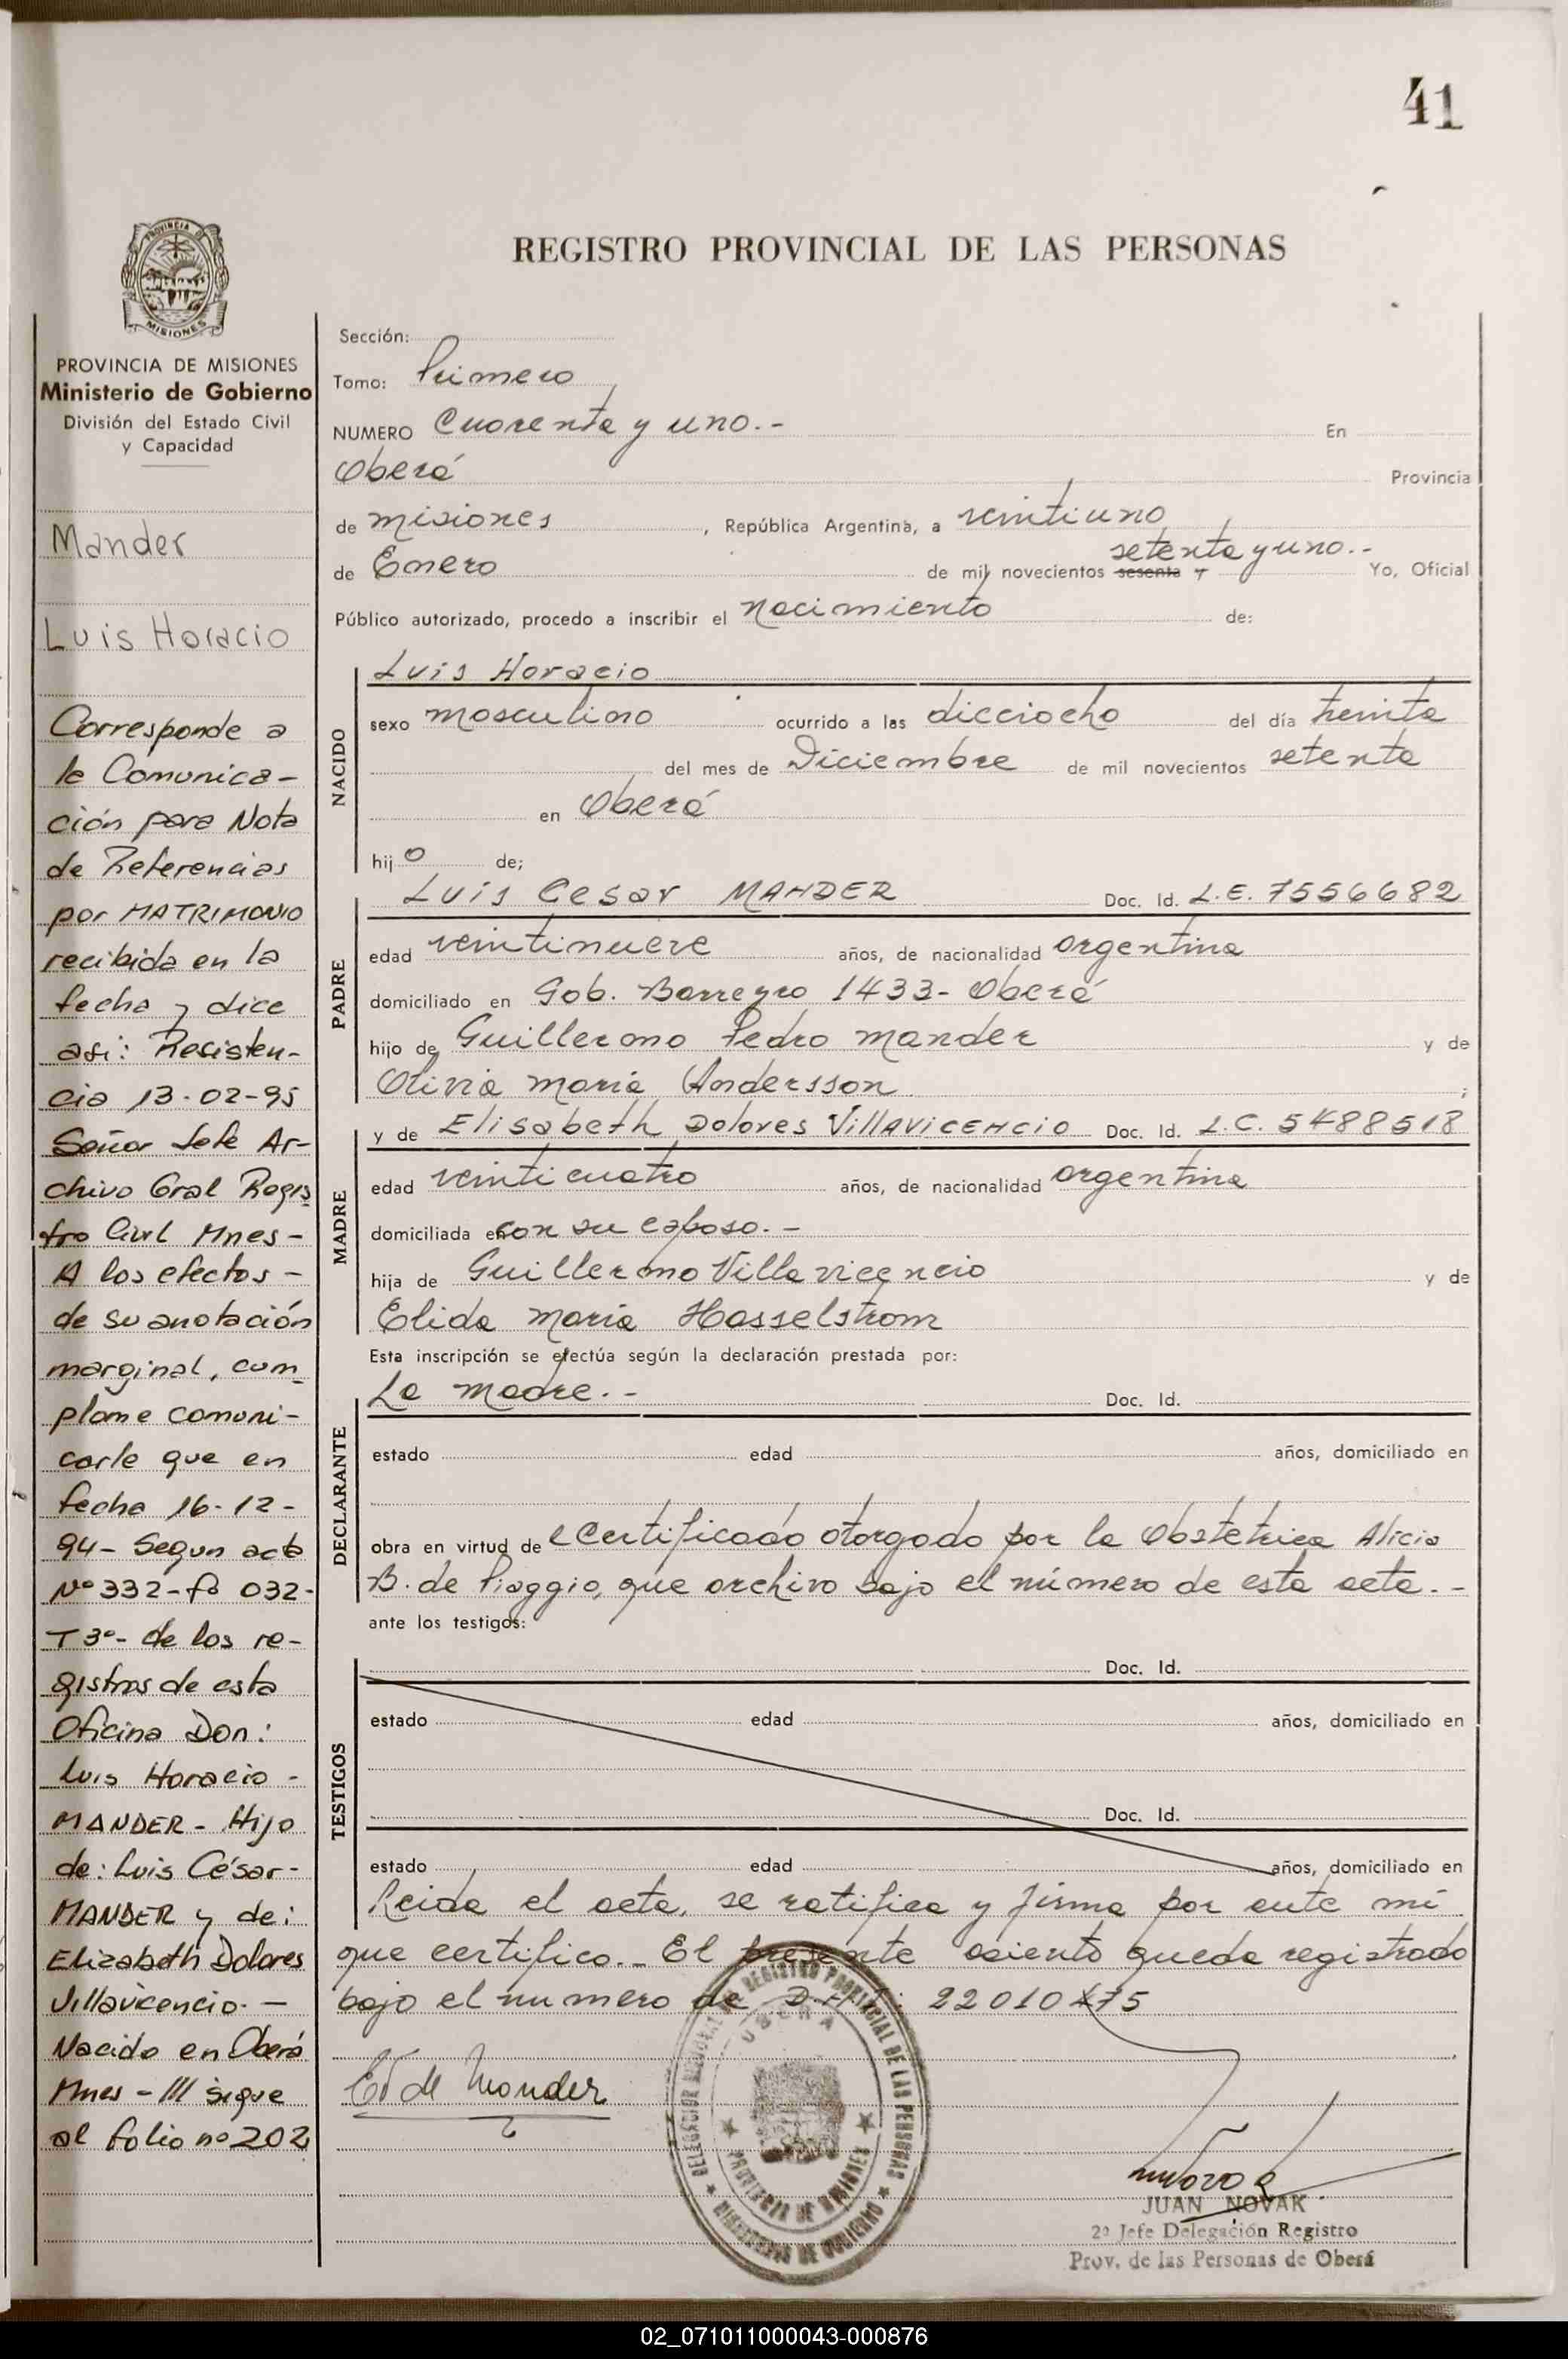 41
REGISTRO PROVINCIAL DE LAS PERSONAS
PROVINCIA DE
MISIONES
PROVINCIA DE MISIONES
Ministerio de Gobierno
División del Estado Civil
y Capacidad
Mander
Luis Horacio
Corresponde a
la Comunica-
ción para Nota
de Referencias
por MATRIMONIO
recibida en la
fecha y dice
asi: Resisten-
cia 13-02-95
Señor Jefe Ar-
chivo Gral Regis
tro Civil Mnes-
A los efectos-
de su anotación
marginal, cum_
plame comuni-
carle que en
fecha 16-12-
94- Segun acta
Nº 332-fº 032-
T 3º- de los re-
gistros de esta
Oficina Don:
Luis Horacio-
MANDER- Hijo
de: Luis César-
MANDER y de:
Elizabeth Dolores
Villavicencio.-
Nacido en Oberá
Mnes-/// sigue
al folio nº 202
Sección:
Tomo: Primero
NUMERO Cuarenta y uno.- En
Oberá Provincia
de misiones, República Argentina, a veintiuno
setenta y uno.-
de Enero de mil novecientos sesenta y Yo, Oficial
Público autorizado, procedo a inscribir el nacimiento de:
NACIDO
Luis Horacio
sexo masculino ocurrido a las dieciocho del día treinta
del mes de Diciembre de mil novecientos setenta
en Oberá
hijo de;
PADRE
Luis Cesar MANDER Doc. Id. L.E. 7556682
edad veintinueve años, de nacionalidad argentina
domiciliado en Gob. Barreyro 1433- Oberá
hijo de Guillermo Pedro Mander y de
Olivia maria Andersson;
MADRE
y de Elisabeth Dolores VillAViCENCiO Doc. Id. L.C. 5488518
edad veinticuatro años, de nacionalidad argentina
domiciliada en con su esposo.-
hija de Guillermo Villavicencio y de
Elida maria Hasselstrom
Esta inscripción se efectúa según la declaración prestada por:
DECLARANTE
La madre.- Doc. Id.
estado edad años, domiciliado en
obra en virtud de Certificado otorgado por la Obstetrica Alicia
B. de Piaggio, que archivo bajo el número de esta acta.-
ante los testigos:
TESTIGOS
Doc. Id.
estado edad años, domiciliado en
Doc. Id.
estado edad años, domiciliado en
Leida el acta, se ratifica y firma por ante mi
que certifico.- El presente asiento queda registrado
bajo el numero de D.N.I: 22010475
E V de Mander
OBERA
PROVINCIA DE MISIONES
MINISTERIO DE GOBIERNO
JUAN NOVAK
2º Jefe Delegación Registro
Prov. de las Personas de Oberá
02_071011000043-000876